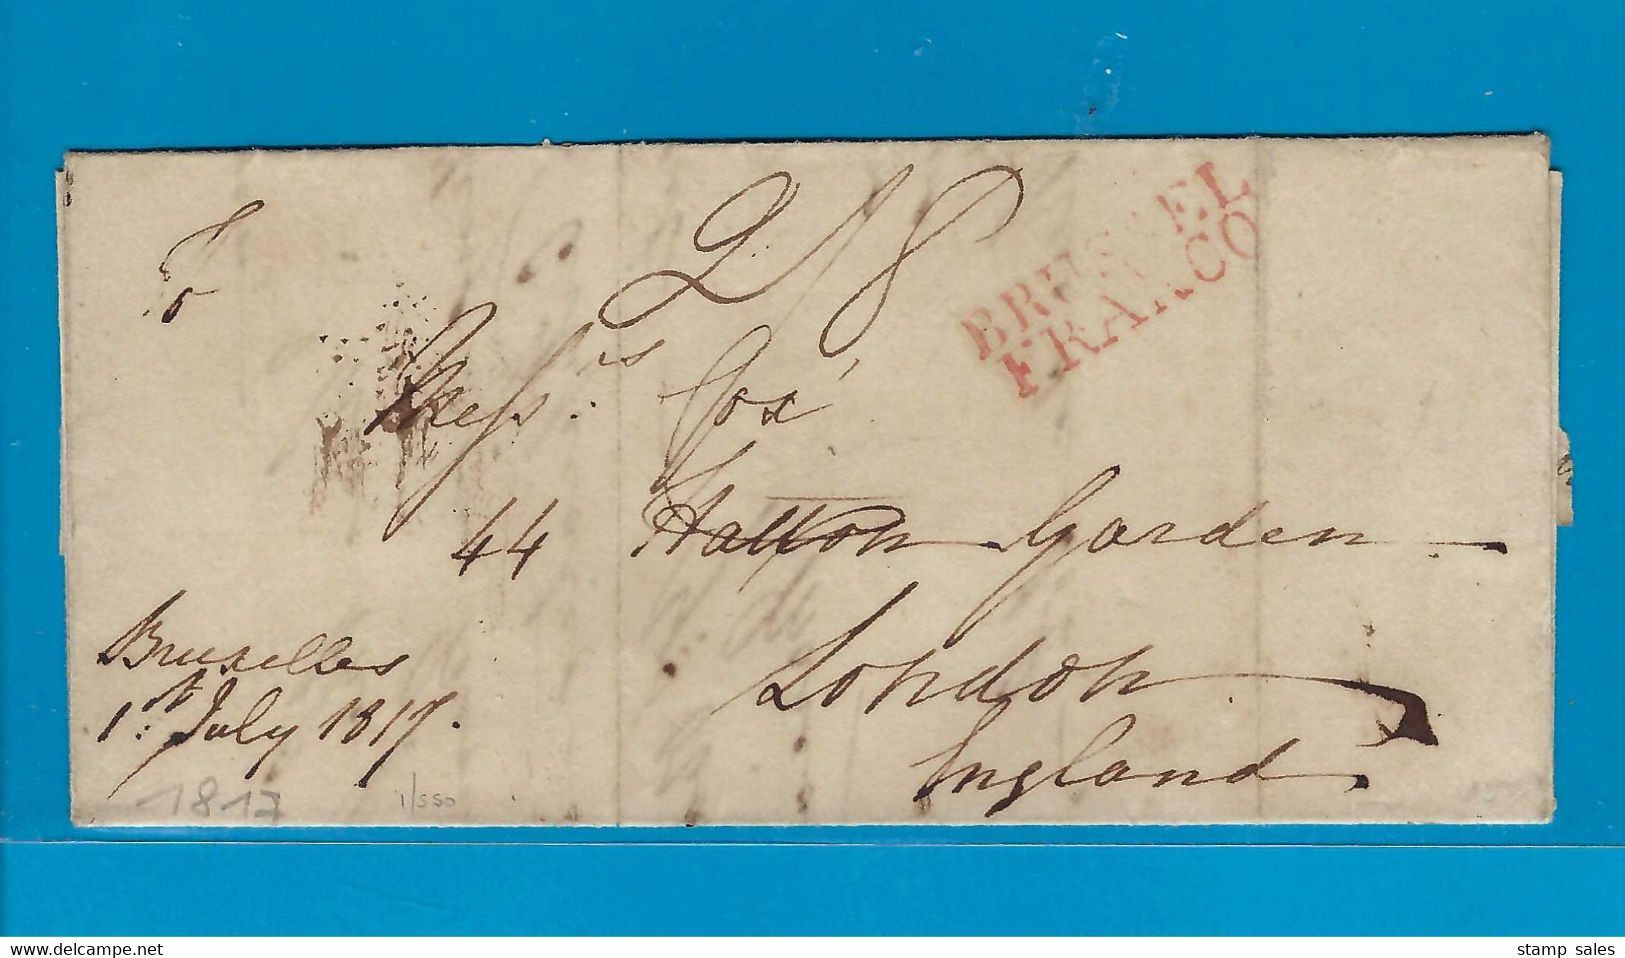 2/8
BRUSSEL
FRANCO
Messrs. Cox
44 Hatton Garden
London
England.
Bruxelles
1st July 1817.
1817
1/550
www.delcampe.net
stamp sales